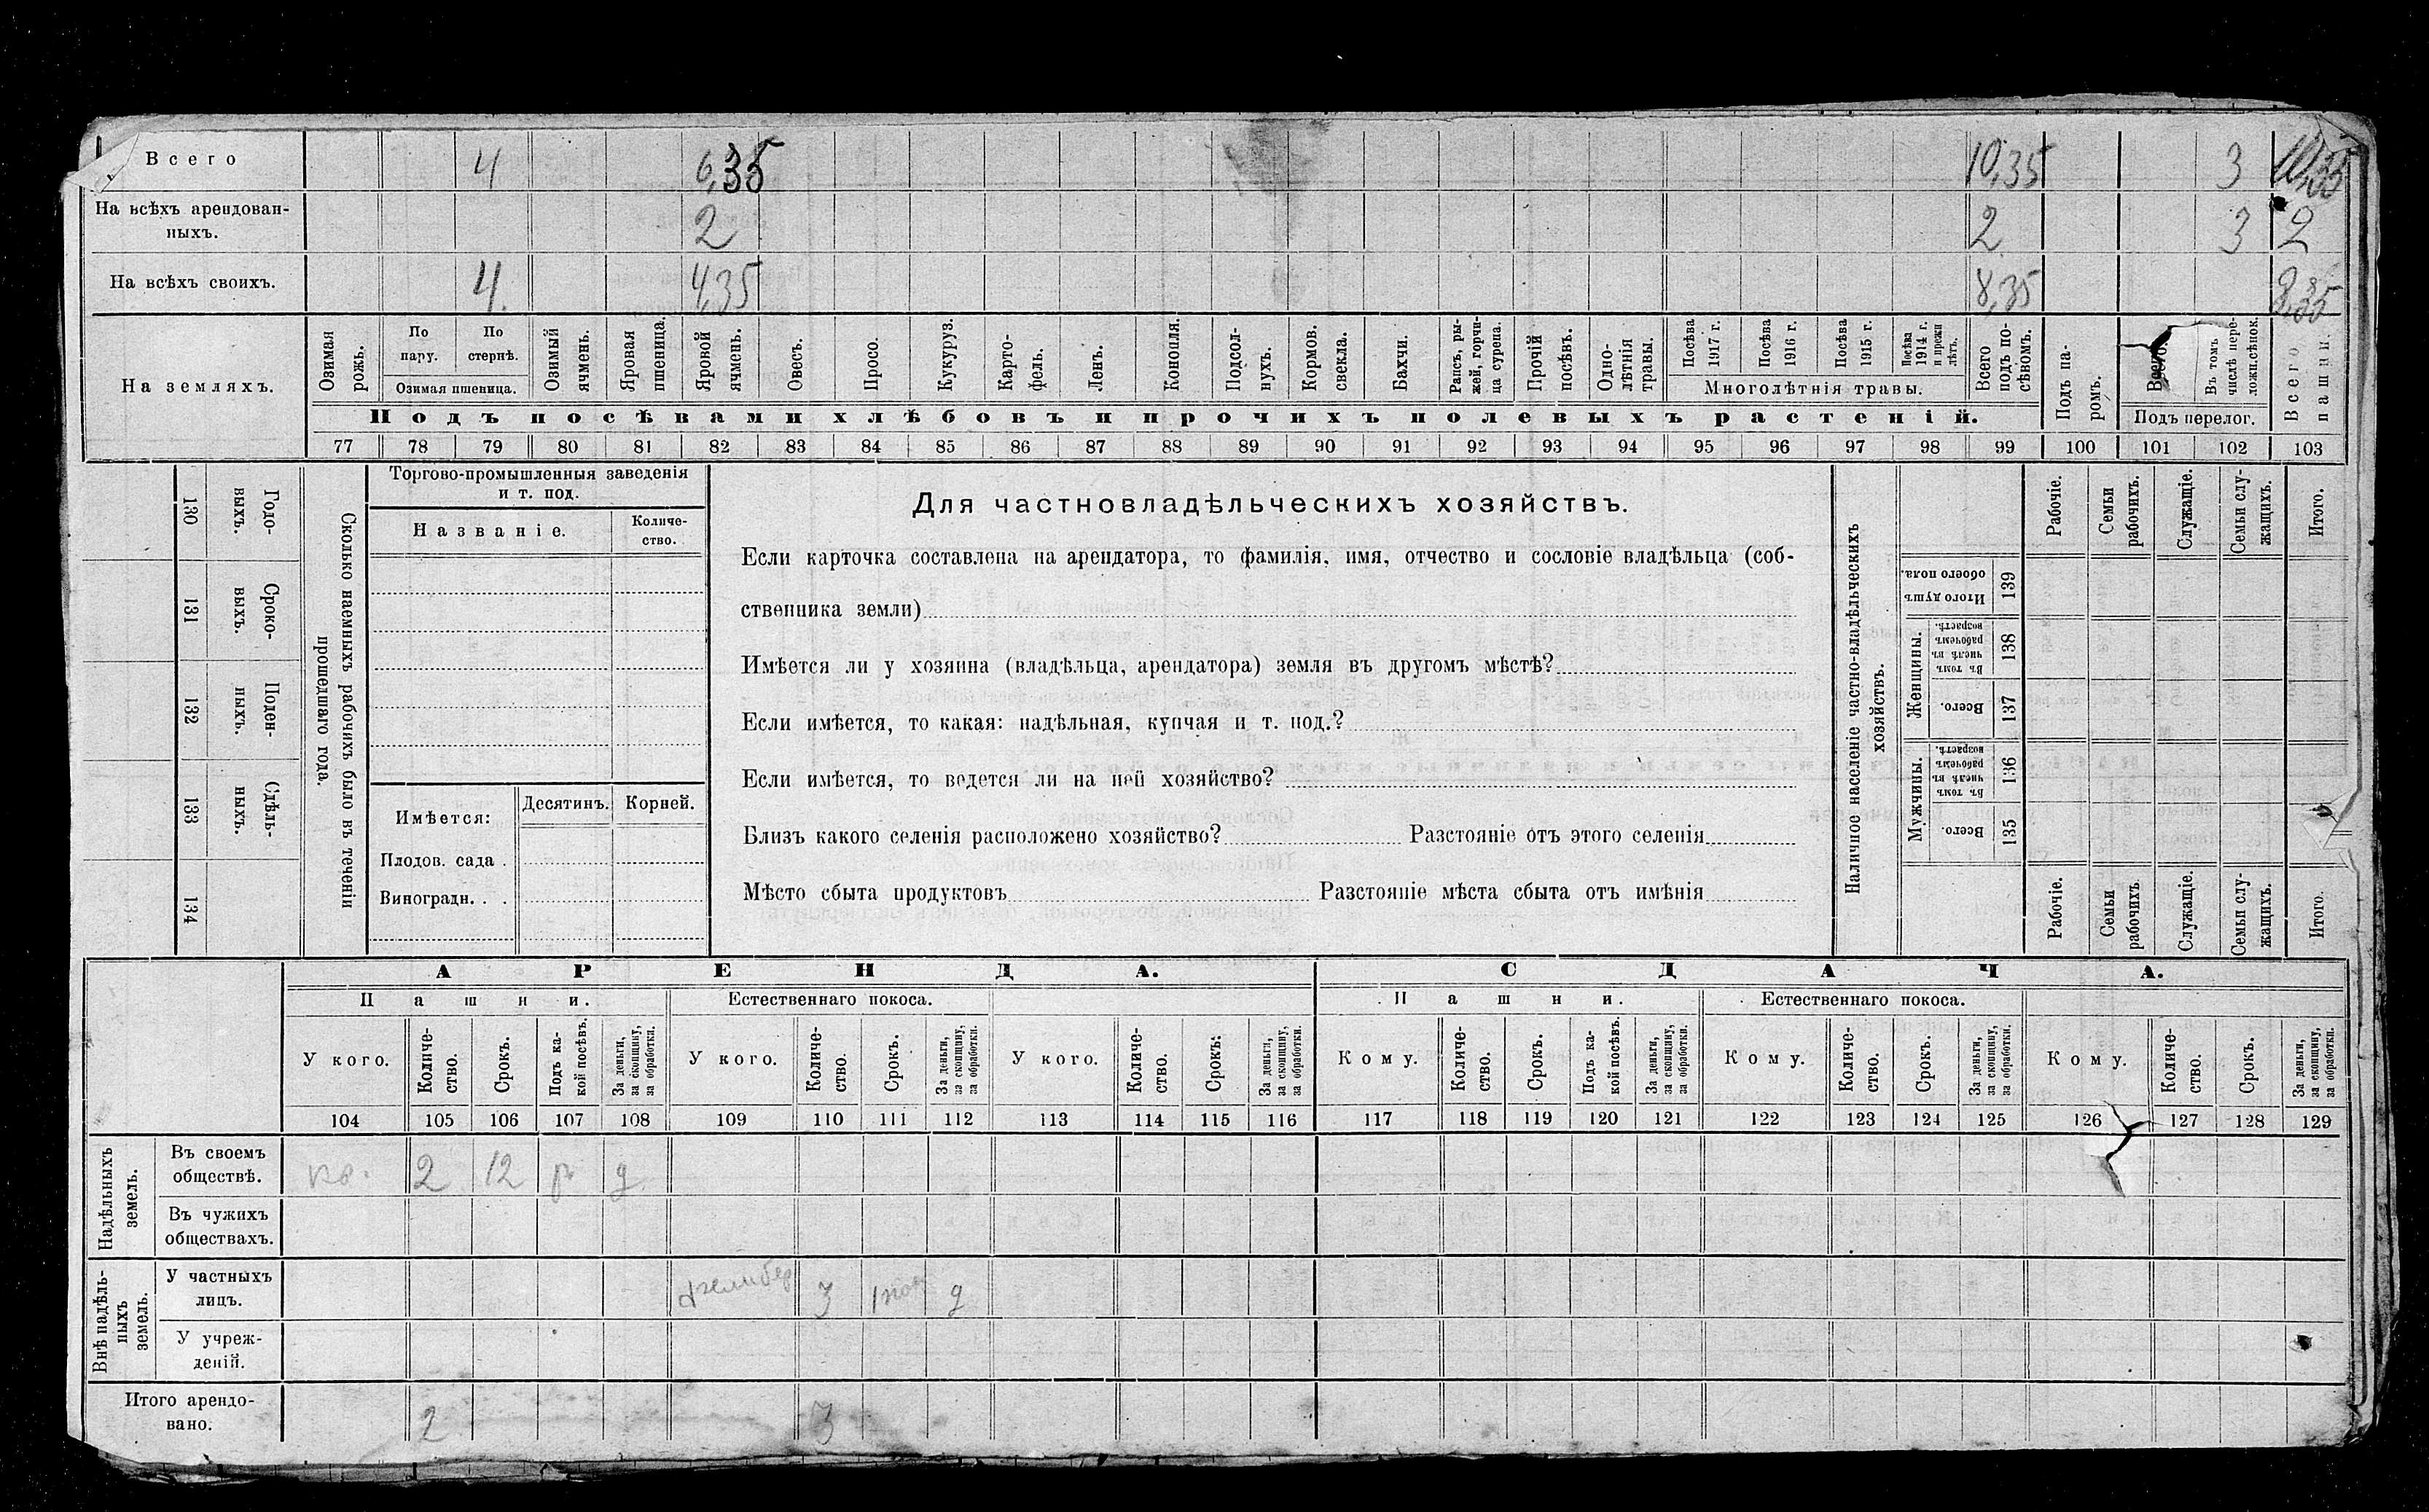 Всего 4 6,35 10,35 3 10,35
На всѣхъ арендован-
ныхъ. 2 2 3 2
На всѣхъ своихъ. 4. 4,35 8,35 8,35
На земляхъ.
Озимая рожь.
По пару.
По стернѣ.
Озимая пшеница.
Озимый ячмень.
Яровая пшеница.
Яровой ячмень.
Овесъ.
Просо.
Кукуруз.
Карто-
фель.
Ленъ.
Конопля.
Подсол-
нухъ.
Кормов.
свекла.
Бахчи.
Рапсъ, ры-
жей, горчи-
ца сурепа.
Прочій
посѣвъ.
Одно-
лѣтнія
травы.
Посѣва
1917 г.
Посѣва
1916 г.
Посѣва
1915 г.
Посѣва
1914 г.
и прежн
лѣтъ.
Многолѣтнія травы.
Всего
подъ по-
сѣвомъ.
Подъ посѣвами хлѣбовъ и прочихъ полевыхъ растеній.
Подъ па-
ромъ.
Всего.
Въ томъ
числѣ пере-
ложн.сѣнок.
Подъ перелог.
Всего
пашни.
77 78 79 80 81 82 83 84 85 86 87 88 89 90 91 92 93 94 95 96 97 98 99 100 101 102 103
130 Годо-
выхъ.
131 Сроко-
выхъ.
132 Поден-
ныхъ.
133 Сдѣль-
ныхъ.
134
Сколько наемныхъ рабочихъ было въ теченіи
прошедшаго года.
Торгово-промышленныя заведенія
и т. под.
Названіе.
Количе-
ство.
Имѣется: Десятинъ. Корней.
Плодов. сада .
Виноградн. . .
Для частновладѣльческихъ хозяйствъ.
Если карточка составлена на арендатора, то фамилія, имя, отчество и сословіе владѣльца (соб-
ственника земли)
Имѣется ли у хозяина (владѣльца, арендатора) земля въ другомъ мѣстѣ?
Если имѣется, то какая: надѣльная, купчая и т. под.?
Если имѣется, то ведется ли на ней хозяйство?
Близъ какого селенія расположено хозяйство? Разстояніе отъ этого селенія
Мѣсто сбыта продуктовъ Разстояніе мѣста сбыта отъ имѣнія
Наличное населеніе частно-владѣльческихъ
хозяйствъ.
Рабочіе.
Семьи
рабочихъ.
Служащіе.
Семьи слу-
жащихъ.
Итого.
Итого душъ
обоего пола.
139
Женщины.
Въ томъ
числѣ въ
рабочемъ
возрастѣ.
138
Всего.
137
Мужчины.
Въ томъ
числѣ въ
рабочемъ
возрастѣ.
136
Всего.
135
Рабочіе.
Семьи
рабочихъ.
Служащіе.
Семьи слу-
жащихъ.
Итого.
АРЕНДА. СДАЧА.
Пашни. Естественнаго покоса. Пашни. Естественнаго покоса.
У кого.
Количе-
ство.
Срокъ.
Подъ ка-
кой посѣвъ.
За деньги,
за скопщину,
за обработки.
У кого.
Количе-
ство.
Срокъ.
За деньги,
за скопщину,
за обработки.
У кого.
Количе-
ство.
Срокъ.
За деньги,
за скопщину,
за обработки.
Кому.
Количе-
ство.
Срокъ.
Подъ ка-
кой посѣвъ.
За деньги,
за скопщину,
за обработки.
Кому.
Количе-
ство.
Срокъ.
За деньги,
за скопщину,
за обработки.
Кому.
Количе-
ство.
Срокъ.
За деньги,
за скопщину,
за обработки.
104 105 106 107 108 109 110 111 112 113 114 115 116 117 118 119 120 121 122 123 124 125 126 127 128 129
Надѣльныхъ
земель.
Въ своемъ
обществѣ. 2 12 д.
Въ чужихъ
обществахъ.
Внѣ надѣль-
ныхъ
земель.
У частныхъ
лицъ. 3 д
У учреж-
деній.
Итого арендо-
вано. 2 3